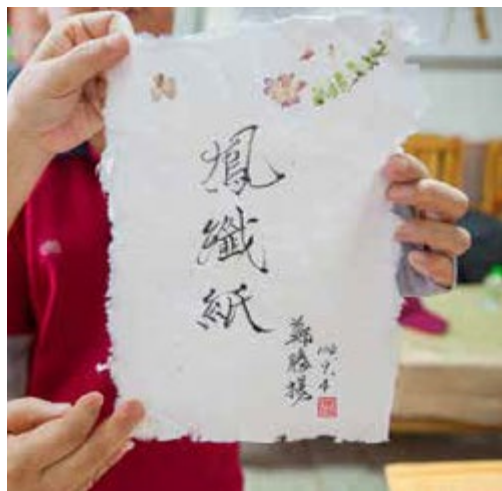 鳳纖紙
鄭勝揚